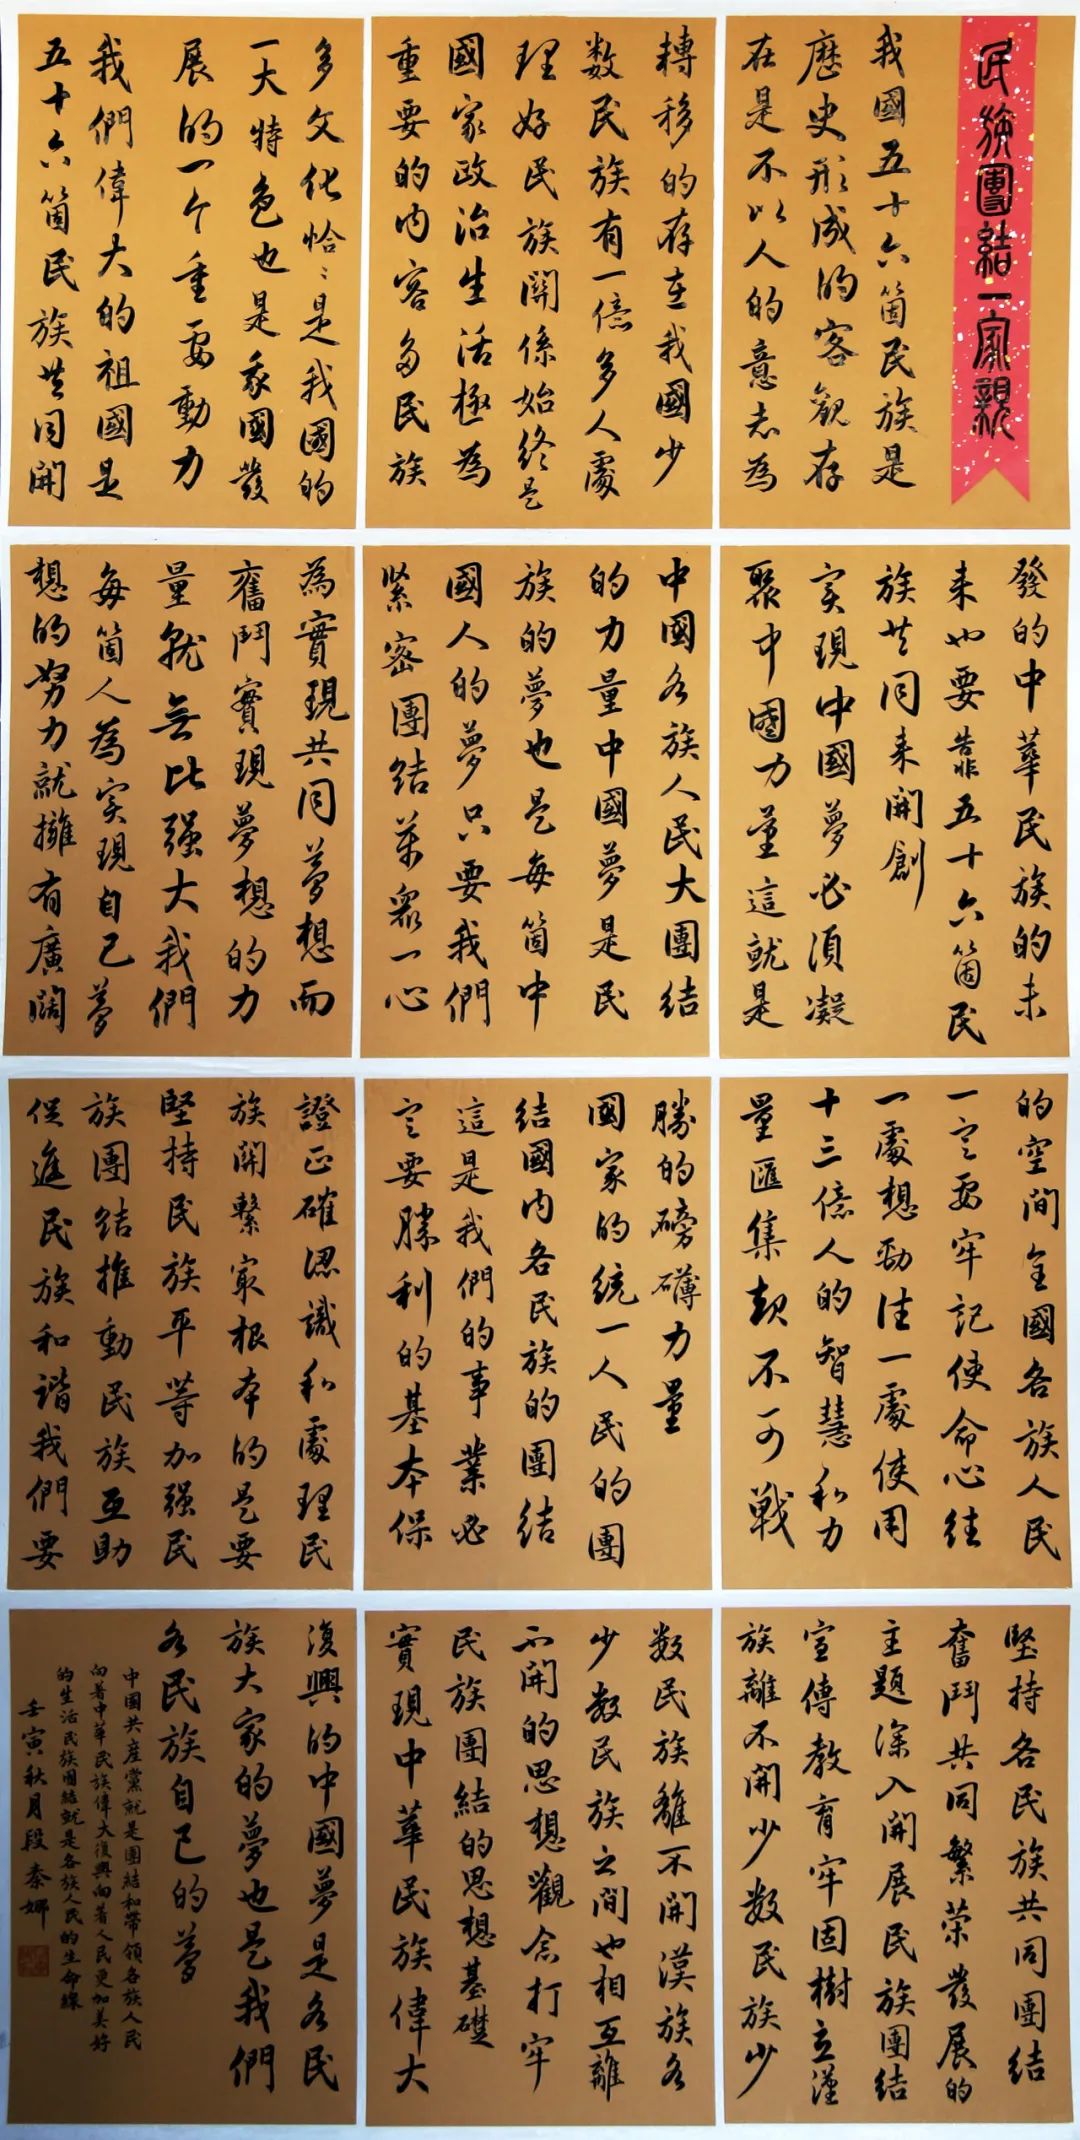 民族團結一家親
我國五十六箇民族是
歷史形成的客觀存
在是不以人的意志為
轉移的存在我國少
数民族有一億多人處
理好民族關係始終是
國家政治生活極為
重要的内容多民族
多文化恰〻是我國的
一大特色也是我國發
展的一个重要動力
我們偉大的祖國是
五十六箇民族共同開
發的中華民族的未
来也要靠五十六箇民
族共同来開創
実現中國夢必須凝
聚中國力量這就是
中國各族人民大團結
的力量中國夢是民
族的夢也是每箇中
國人的夢只要我們
緊密團结萬衆一心
為實現共同夢想而
奮鬥實現夢想的力
量就無比强大我們
每箇人為实現自己夢
想的努力就擁有廣闊
的空間全國各族人民
一定要牢記使命心往
一處想勁往一處使用
十三億人的智慧和力
量匯集起不可戰
勝的磅礴力量
國家的统一人民的團
结國内各民族的團结
這是我們的事業必
定要勝利的基本保
證正確認識和處理民
族關繫最根本的是要
堅持民族平等加强民
族團结推動民族互助
促進民族和谐我們要
堅持各民族共同團结
奮鬥共同繁荣發展的
主題深入開展民族團结
宣傳教育牢固樹立漢
族離不開少数民族少
数民族離不開漢族各
少数民族之間也相互離
不開的思想觀念打牢
民族團結的思想基礎
實現中華民族偉大
復興的中國夢是各民
族大家的夢也是我們
各民族自己的夢
中國共産黨就是團結和帶領各族人民
向著中華民族偉大復興向著人民更加美好
的生活民族團结就是各族人民的生命線
壬寅秋月段秦娜